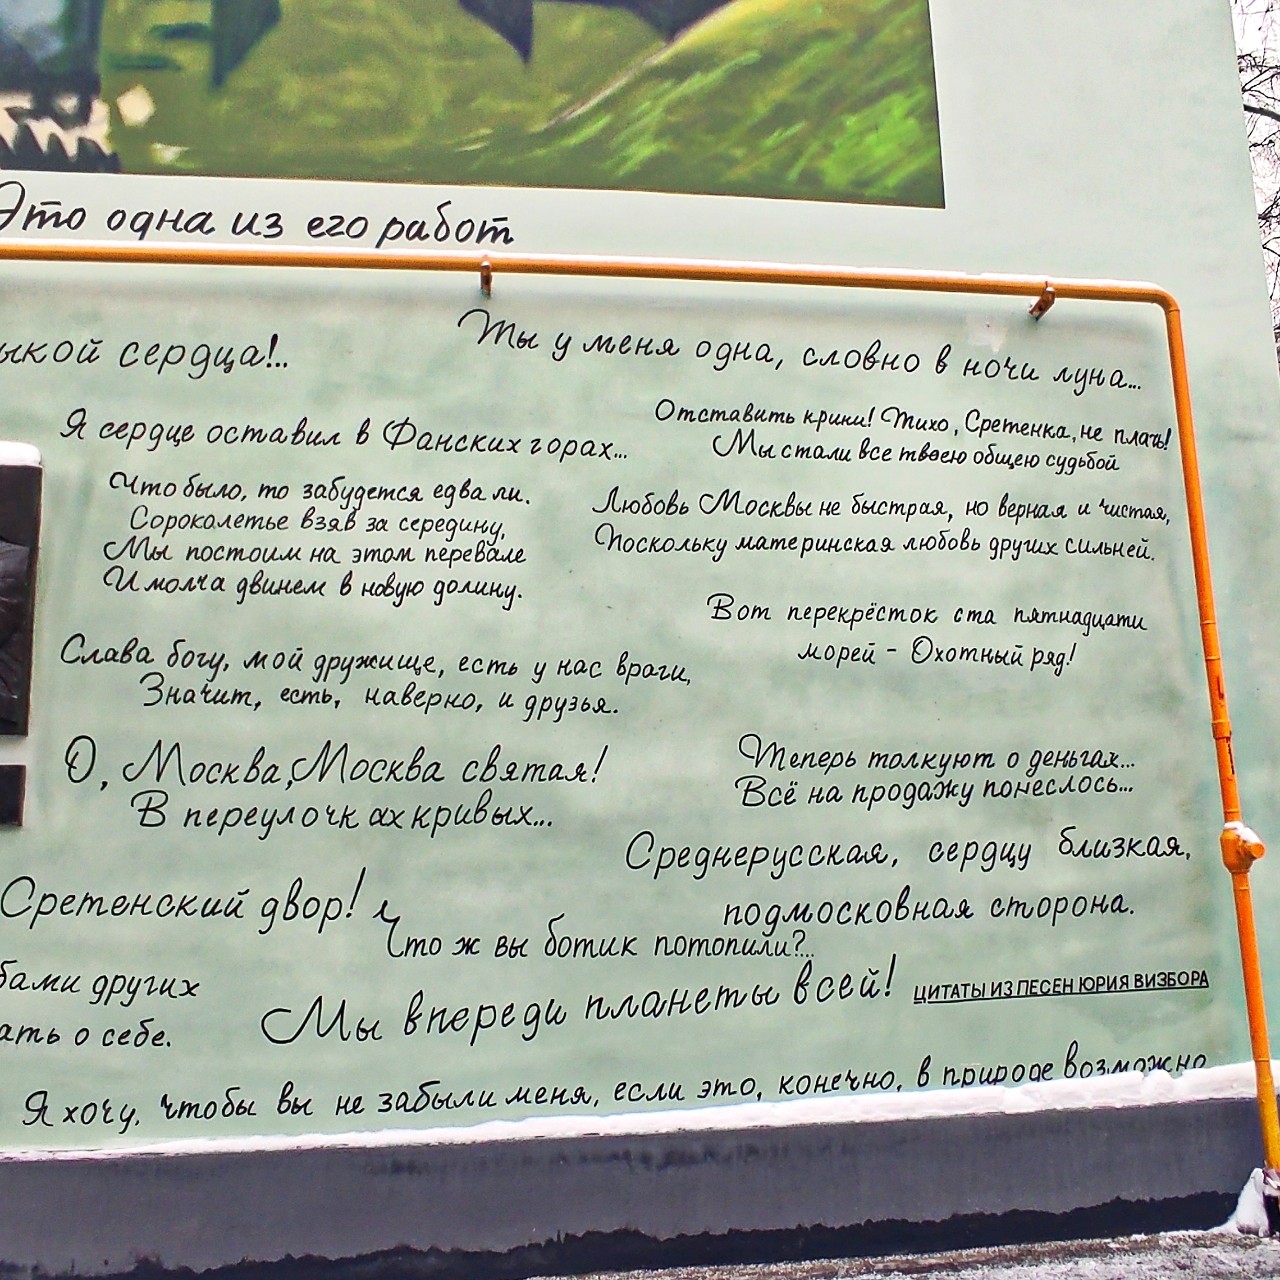 Это одна из его работ
сердца!..
Ты у меня одна, словно в ночи луна...
Я сердце оставил в Фанских горах...
Что было, то забудется едва ли.
Сорокалетье взяв за середину,
Мы постоим на этом перевале
И молча двинем в новую долину.
Слава богу, мой дружище, есть у нас враги,
Значит, есть, наверно, и друзья.
О, Москва, Москва святая!
В переулочках кривых...
Сретенский двор!
других
о себе.
Отставить крики! Тихо, Сретенка, не плачь!
Мы стали все твоею общею судьбой
Любовь Москвы не быстрая, но верная и чистая,
Поскольку материнская любовь других сильней.
Вот перекрёсток ста пятнадцати
морей - Охотный ряд!
Теперь толкуют о деньгах...
Всё на продажу понеслось...
Среднерусская, сердцу близкая,
подмосковная сторона.
Что ж вы ботик потопили?..
Мы впереди планеты всей!
ЦИТАТЫ ИЗ ПЕСЕН ЮРИЯ ВИЗБОРА
Я хочу, чтобы вы не забыли меня, если это, конечно, в природе возможно